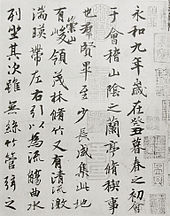 永和九年歲在癸丑暮春之初會
于會稽山陰之蘭亭脩禊事
也群賢畢至少長咸集此地
有崇山峻領茂林脩竹又有清流激
湍暎帶左右引以為流觴曲水
列坐其次雖無絲竹管絃之